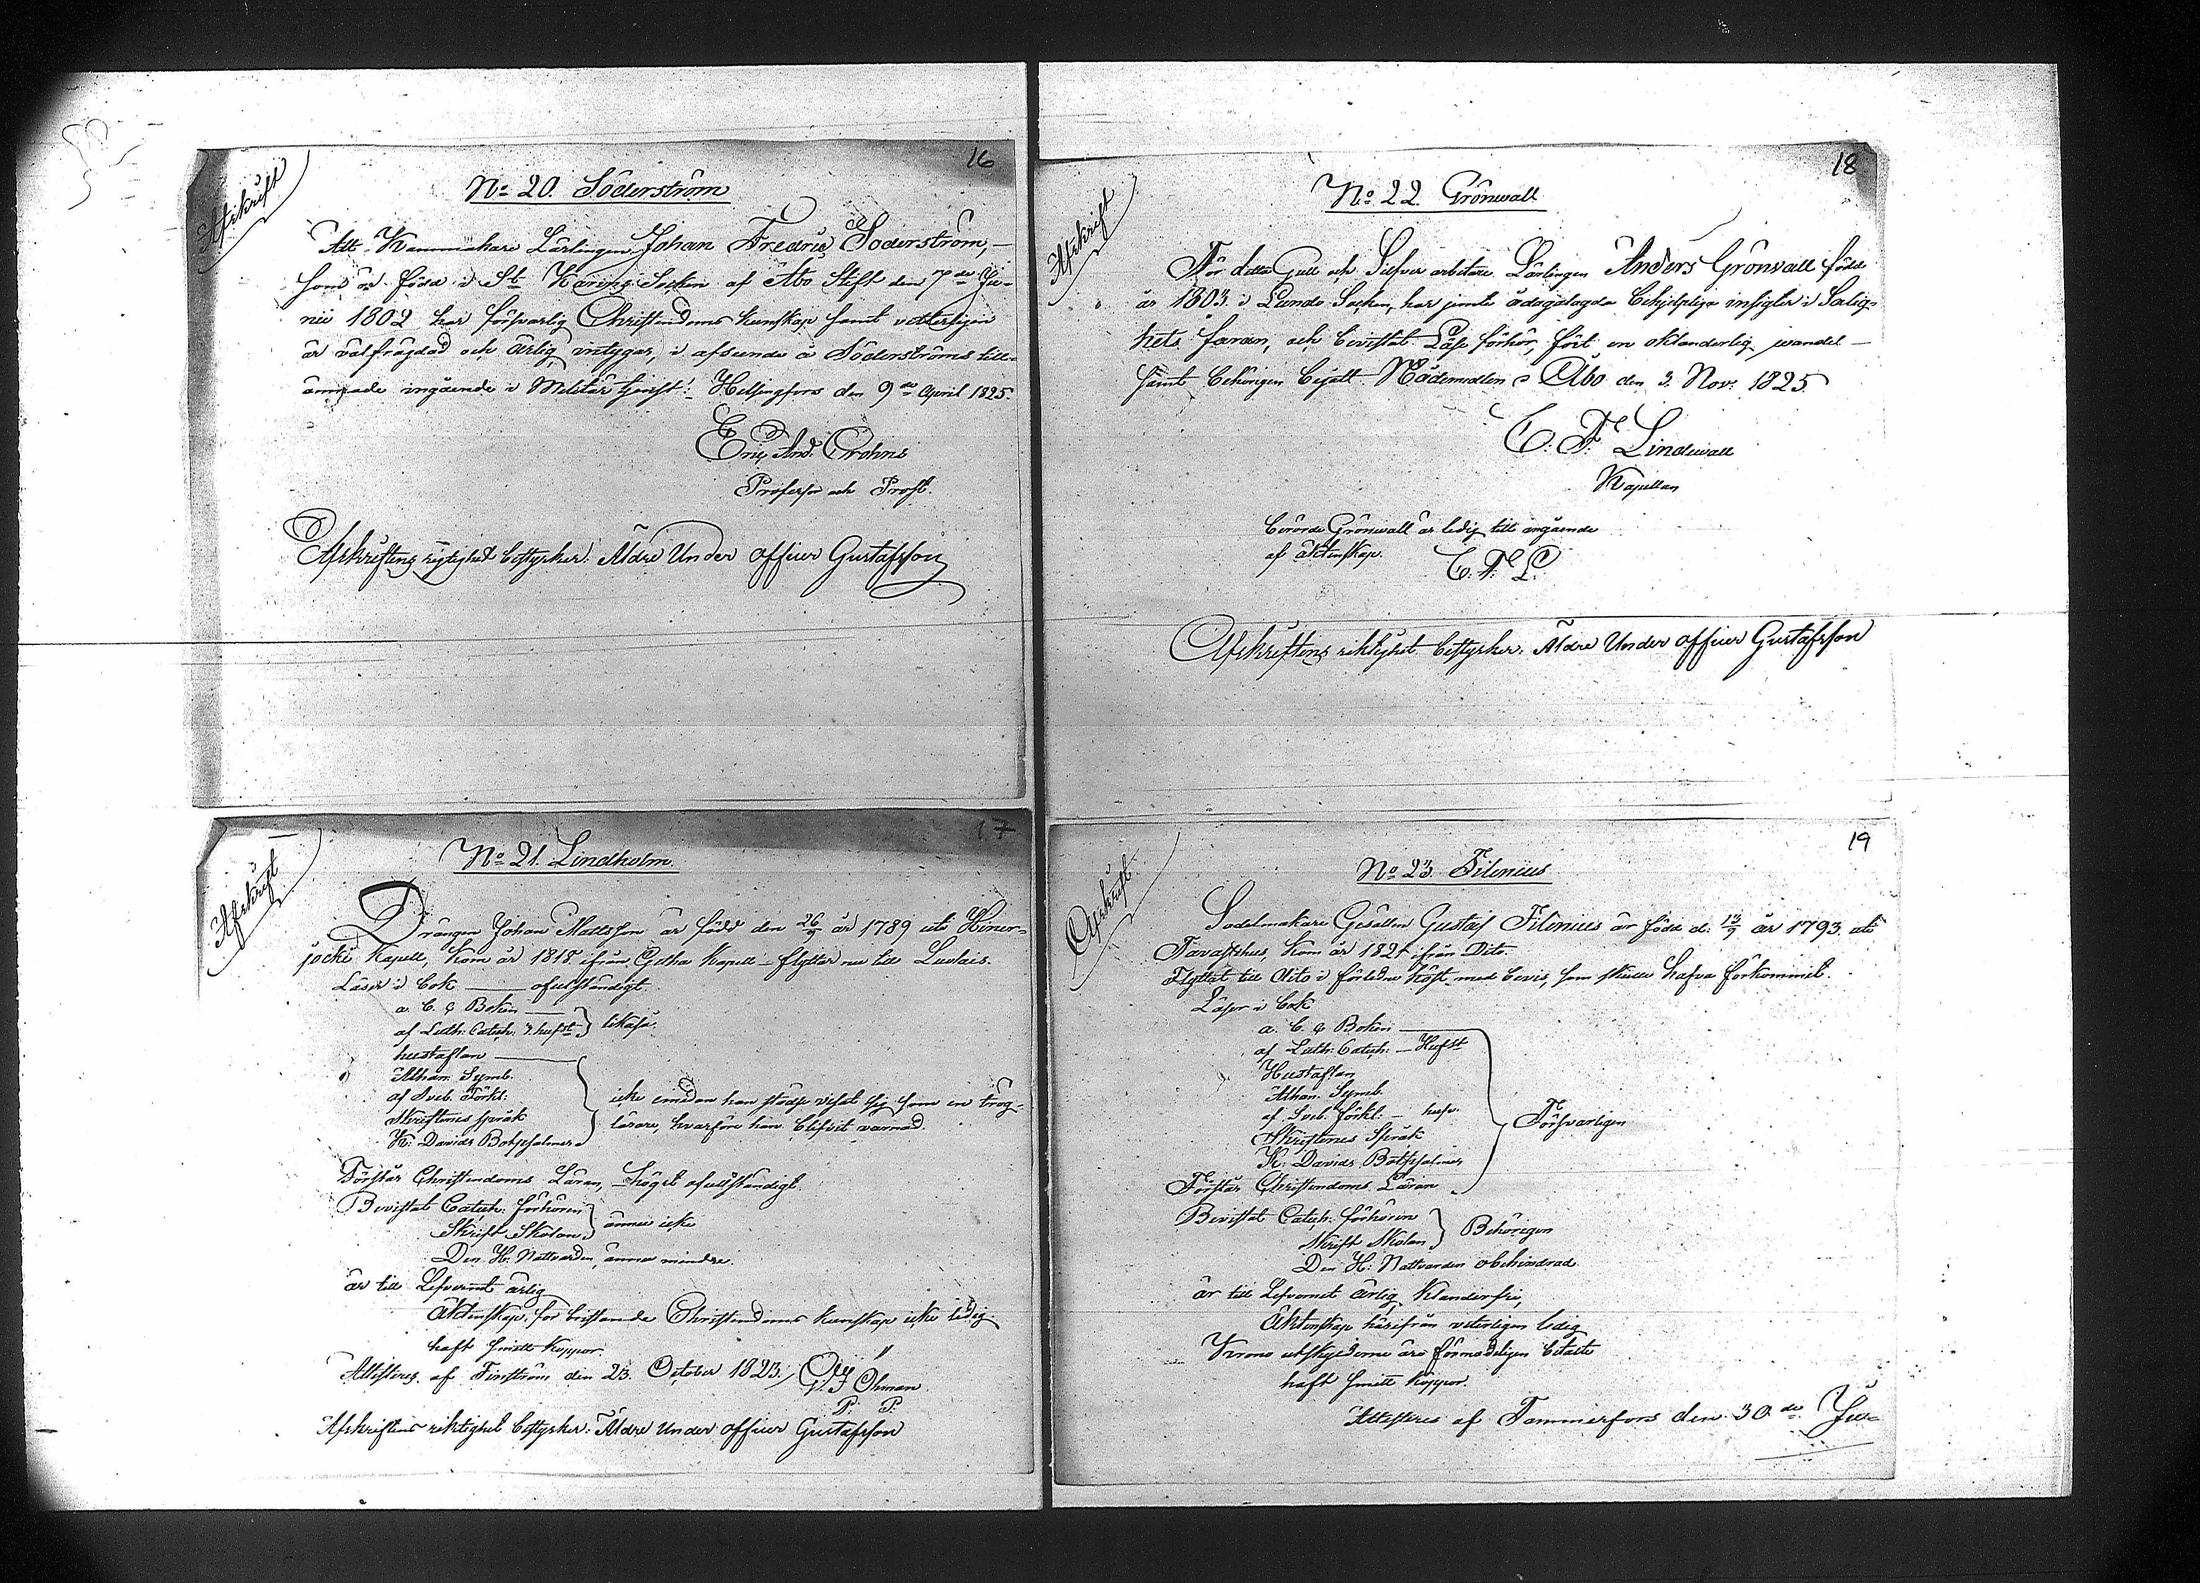 16
Afskrift
No 20. Söderström
Att Kammakare Lärlingen Johan Fredric Söderström, —
som är född i St Karins Socken af Åbo Stift den 7de Ju-
nii 1802 har försvarlig Christendoms kunskap samt vitterligen
är välfrägdad och ärlig, intygar, i afseende å Söderströms till-
ämnade ingående i Militär tjenst. Helsingfors den 9de April 1825.
Eric And. Crohns
Professor och Prost.
Afskriftens rigtighet bestyrker: Äldre Under officer Gustafsson
17
Afskrift
No 21. Lindholm.
Drängen Johan Mattsson är född den 26/9 år 1789 uti
jocki Kapell, kom år 1818 ifrån Kapell — flyttar nu till
Läser i bok —— ofullständigt.
a. b. c Boken —
af Luth: Catech: 3. hufst } likaså.
hustaflan ——
Athan. Symb.
af Sveb. Förkl:
Skriftenes språk
K: Davids Botpsalmer
icke emedan han städse visat sig som en trög-
lärare, hvarföre han blifvit varnad.
Förstår Christendoms Läran, högst ofullständigt.
Bevistat Catech. förhören
Skrift Skolan } ännu icke
Den H: Nattvarden, ännu mindre.
är till Lefvernet ärlig
Äktenskap, för bristande Christendoms kunskap icke ledig.
haft smitt koppor.
Attesteras af Finström den 23. October 1823. Öhman
P: P:
Afskriftens riktighet bestyrker: Äldre Under officer Gustafsson
18
Afskrift
No 22. Grönwall
För detta Guld och Silfver arbetare Lärlingen Anders Grönvall född
år 1803. i Lundo Socken, har jemte ådagalagde behjelplige insigter i Salig-
hets läran, och bevistat Läse förhör, fört en oklanderlig wandel —
samt behörigen begått Nådemedlen. Åbo den 3. Nov: 1825
C. F. Lindewall
Kapellan
berörde Grönwall är ledig till ingående
af äktenskap.
C. F. L.
Afskriftens riktighet bestyrker. Äldre Under officer Gustafsson
19
Afskrift
No 23. Filenius
Sadelmakare Gesällen Gustaf Filenius är född d: 13/9 år 1793. uti
Tavasthus, kom år 1821 ifrån Dito.
Flyttat till Dito i förledne höst med bevis, som skulle hafva förkommit.
Läser i bok
a. b. c Boken ——
af Luth: Catech: — Hufst
Hustaflan
Athan. Symb.
af Sveb. förkl: — hufv.
Skriftenes Språk
K: Davids Botpsalmer
Förstår Christendoms Läran
Försvarligen
Bevistat Catech: förhören
Skrift Skolan } Behörigen
Den H: Nattvarden obehindrad
är till Lefvernet ärlig, klanderfri,
Äktenskap härifrån veterligen ledig
Krono utskylderne äro förmodeligen betalte
haft smitt koppor.
Attesteras af Tammerfors den 30de Ju-